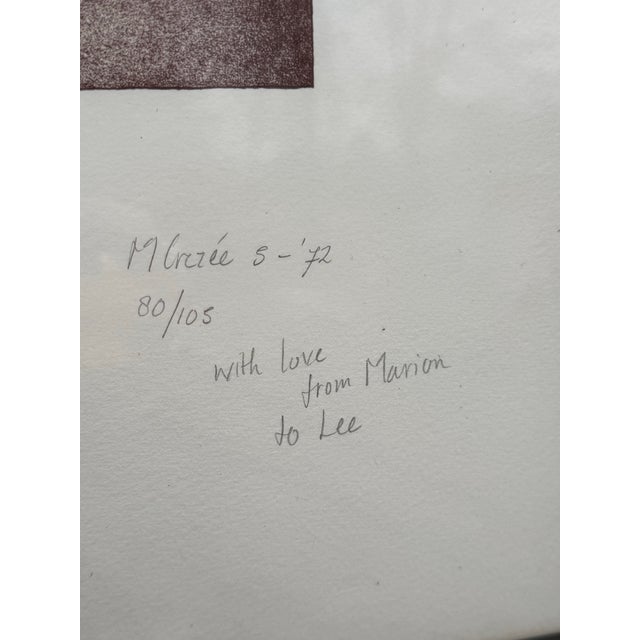 M Crezée 5-'72
80/105
with love
from Marion
to Lee